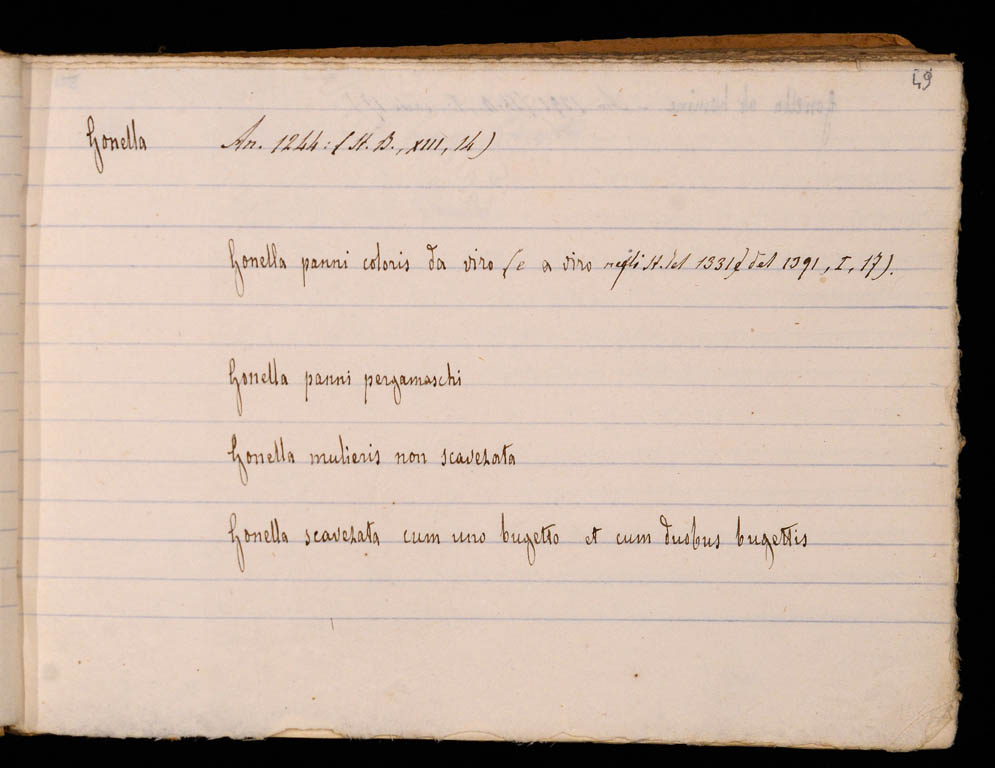 49
Gonella An. 1244: (St. B., XIII, 14)
Gonella panni coloris da viro (e a viro negli st. del 1331 e del 1391, I, 17).
Gonella panni pergamaschi
Gonella mulieris non scavezata
Gonella scavezata cum uno bugetto et cum duobus bugettis